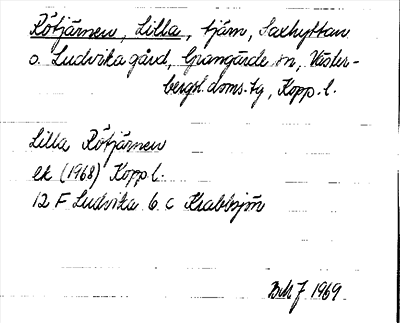 Rötjärnen, Lilla, tjärn, Saxhyttan
o. Ludvika gård, Grangärde sn, Väster-
bergsl. doms. tg, Kopp. l.
Lilla Rötjärnen
ek (1968) Kopp l.
12 F Ludvika 6 c Krabbsjön
1969